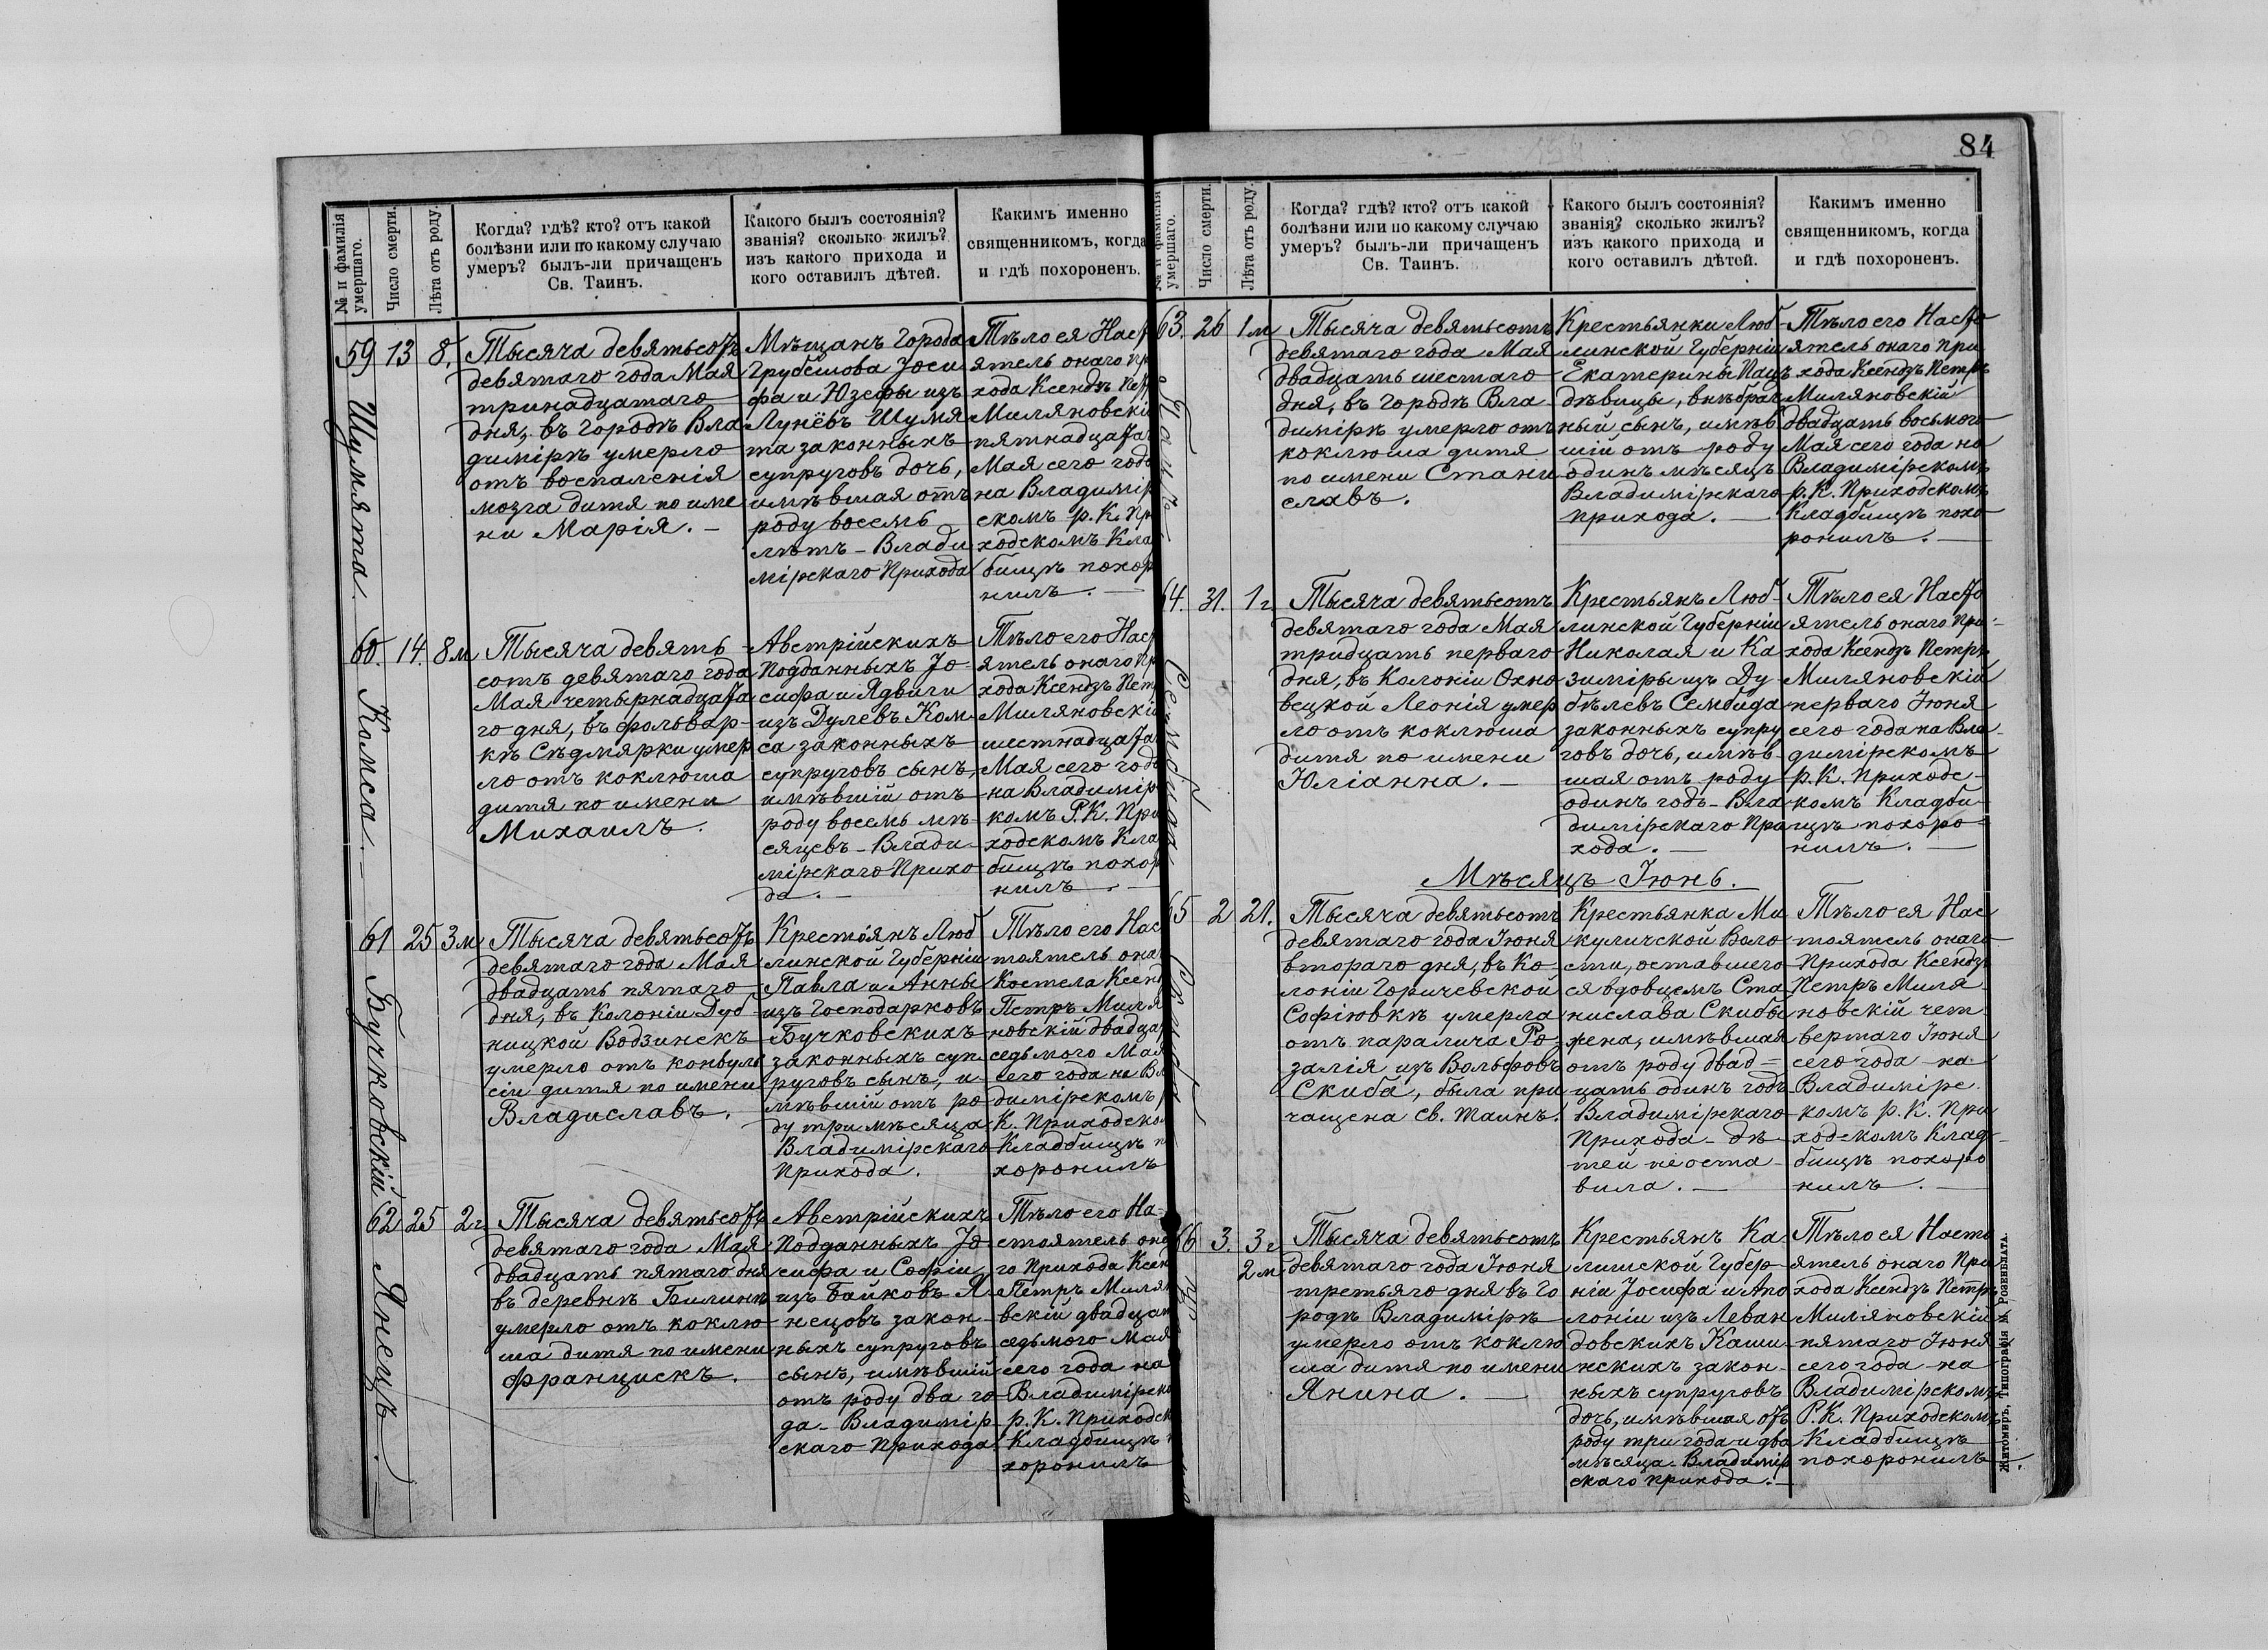 84
№ и фамилія умершаго.
Число смерти.
Лѣта отъ роду.
Когда? гдѣ? кто? отъ какой
болѣзни или по какому случаю
умеръ? былъ-ли причащенъ
Св. Таинъ.
Какого былъ состоянія?
званія? сколько жилъ?
изъ какого прихода и
кого оставилъ дѣтей.
Какимъ именно
священникомъ, когда
и гдѣ похороненъ.
59 Шумята.
13
8.
Тысяча девятьсотъ
девятаго года Мая
тринадцатаго
дня, въ городѣ Вла
димірѣ умерло
отъ воспаленія
мозга дитя по име
ни Марія. –
Мѣщанъ города
Грубешова Іоси
фа и Юзефы изъ
Лунёвъ Шумя
та законныхъ
супруговъ дочь,
имѣвшая отъ
роду восемь
лѣтъ – Влади
мірскаго Прихода
Тѣло ея Наст
ятель онаго пр
хода Ксендзъ Пет
Миляновскі
пятнадцата
Мая сего год
на Владимір
скомъ р. К. Пр
ходскомъ Кла
бищѣ похор
нилъ. –
60. Комса. –
14.
8 м
Тысяча девять
сотъ девятаго года
Мая четырнадцата
го дня, въ фольвар-
кѣ Сѣдмярки умер
ло отъ коклюша
дитя по имени
Михаилъ.
Австрійскихъ
Подданныхъ Іо-
сифа и Ядвиги
изъ Дулевъ Ком-
са законныхъ
супруговъ сынъ,
имѣвшій отъ
роду восемь мѣ-
сяцевъ – Влади-
мірскаго Прихо-
да. –
Тѣло его Нас
ятель онаго Пр
хода Ксендзъ Пет
Миляновскі
шестнадцата
Мая сего год
на Владимір
комъ Р. К. При
ходскомъ Кла
бищѣ похор
нилъ. –
61 Бучковскій
25
3 м
Тысяча девятьсотъ
девятаго года Мая
двадцать пятаго
дня, въ Колоніи Дуб-
ницкой Водзинскъ
умерло отъ конвуль
сіи дитя по имени
Владиславъ.
Крестьянъ Люб
линской Губерніи
Павла и Анны
изъ Господарковъ
Бучковскихъ
законныхъ суп-
руговъ сынъ, и-
мѣвшій отъ ро-
ду три мѣсяца
Владимірскаго
Прихода.
Тѣло его Нас
тоятель она
Костела Ксенд
Петръ Миля
новскій двадца
седьмого Мая
сего года на Вл
димірскомъ
К. Приходско
Кладбищѣ п
хоронилъ
62 Янецъ. –
25
2 г
Тысяча девятьсотъ
девятаго года Мая
двадцать пятаго дня
въ деревнѣ Билинѣ
умерло отъ коклю-
ша дитя по имени
Францискъ.
Австрійскихъ
Подданныхъ Іо
сифа и Софіи
изъ Байковъ Я-
нецовъ закон-
ныхъ супруговъ
сынъ, имѣвшій
отъ роду два го-
да – Владимір-
скаго Прихода
Тѣло его На-
стоятель она
го Прихода Ксен
Петръ Милян
вскій двадцат
седьмого Мая
сего года на
Владимірско
р. К. Приходск
Кладбищѣ
хоронилъ
№ и фамилія умершаго.
Число смерти.
Лѣта отъ роду.
Когда? гдѣ? кто? отъ какой
болѣзни или по какому случаю
умеръ? былъ-ли причащенъ
Св. Таинъ.
Какого былъ состоянія?
званія? сколько жилъ?
изъ какого прихода и
кого оставилъ дѣтей.
Какимъ именно
священникомъ, когда
и гдѣ похороненъ.
63.
26
1 м
Тысяча девятьсотъ
девятаго года Мая
двадцать шестаго
дня, въ городѣ Вла-
димірѣ умерло отъ
коклюша дитя
по имени Стани
славъ.
Крестьянки Люб-
линской Губерніи
Екатерины Пацъ
дѣвицы, внѣбрач
ный сынъ, имѣв
шій отъ роду
одинъ мѣсяцъ
Владимірскаго
прихода. –
Тѣло его Насто
ятель онаго при
хода Ксендзъ Петръ
Миляновскій
двадцать восьмого
Мая сего года на
Владимірскомъ
р. К. Приходскомъ
Кладбищѣ похо
ронилъ. –
64.
31.
1 г
Тысяча девятьсотъ
девятаго года Мая
тридцать перваго
дня, въ Колоніи Охно
вецкой Леонія умер
ло отъ коклюша
дитя по имени
Юліанна. –
Крестьянъ Люб-
линской Губерніи
Николая и Ка
зиміры изъ Ду
бѣлевъ Сембида
законныхъ супру
говъ дочь, имѣв-
шая отъ роду
одинъ годъ – Вла
димірскаго При
хода. –
Тѣло ея Насто
ятель онаго При-
хода Ксендзъ Петръ
Миляновскій
перваго Іюня
сего года на Вла-
димірскомъ
р. К. Приходс-
комъ Кладби-
щѣ похоро-
нилъ. –
Мѣсяцъ Іюнь.
65 Скиба
2
21.
Тысяча девятьсотъ
девятаго года Іюня
втораго дня, въ Ко-
лоніи Горичевской
Софіювкѣ умерла
отъ паралича Ро-
залія изъ Вольфовъ
Скиба, была при
чащена Св. Таинъ.
Крестьянка Ми
куличской Воло
сти, оставшего
ся вдовцемъ Ста
нислава Скибы
жена, имѣвшая
отъ роду двад-
цать одинъ годъ
Владимірскаго
Прихода – дѣ
тей не оста-
вила. –
Тѣло ея Нас
тоятель онаго
Прихода Ксендзъ
Петръ Миля
новскій чет
вертаго Іюня
сего года на
Владимірс
комъ р. К. При
ходскомъ Клад-
бищѣ похоро
нилъ. –
66
3.
3 г
2 м
Тысяча девятьсотъ
девятаго года Іюня
третьяго дня въ Го
родѣ Владимірѣ
умерло отъ коклю
ша дитя по имени
Янина. –
Крестьянъ Ка-
лишской Губер-
ніи Іосифа и Апо
лоніи изъ Леван
довскихъ Каши-
нскихъ закон-
ныхъ супруговъ
дочь, имѣвшая отъ
роду три года и два
мѣсяца – Владимір
скаго прихода. –
Тѣло ея Насто
ятель онаго При
хода Ксендзъ Петръ
Миляновскій
пятаго Іюня
сего года на
Владимірскомъ
Р. К. Приходскомъ
Кладбищѣ
похоронилъ.
Житомиръ, Типографія М. Розенблата.